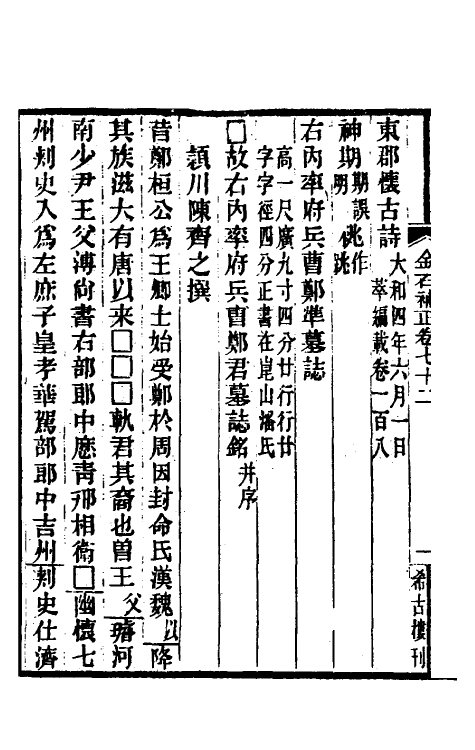 金石補正卷七十二
一
希古樓刊
東郡懷古詩 大和四年六月一日
萃編載卷一百八
神期 期誤明 佻 作跳
右內率府兵曹鄭準墓誌
高一尺廣九寸四分廿行行廿
字字徑四分正書在崑山潘氏
□故右內率府兵曹鄭君墓誌銘 并序
潁川陳齊之撰
昔鄭桓公爲王卿士始受鄭於周因封命氏漢魏以降
其族滋大有唐以来□□□軌君其裔也曽王父璿河
南少尹王父溥尚書右部郎中歷靑邢相衛□幽懷七
州刾史入爲左庶子皇考華駕部郎中吉州刾史仕濟